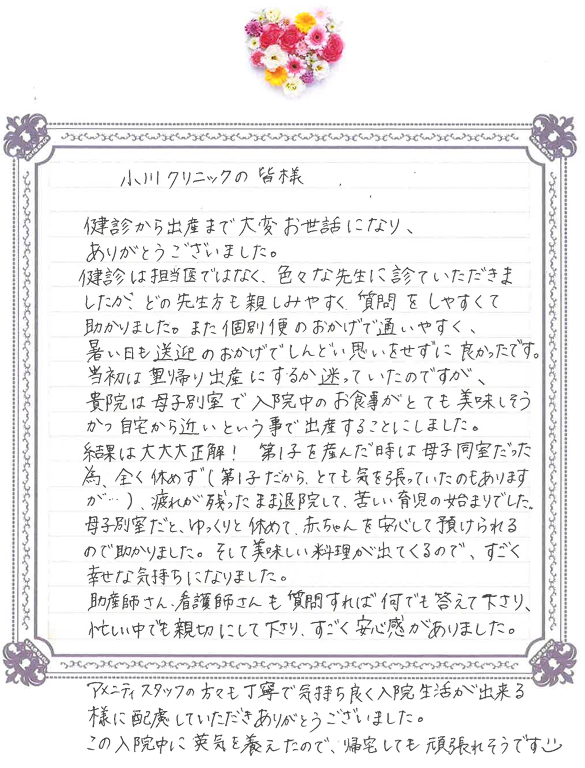 小川クリニックの皆様
健診から出産まで大変お世話になり、
ありがとうございました。
健診は担当医ではなく、色々な先生に診ていただきま
したが、どの先生方も親しみやすく、質問をしやすくて
助かりました。また個別便のおかげで通いやすく、
暑い日も送迎のおかげでしんどい思いをせずに良かったです。
当初は里帰り出産にするか迷っていたのですが、
貴院は母子別室で入院中のお食事がとても美味しそう
かつ自宅から近いという事で出産することにしました。
結果は大大大正解! 第1子を産んだ時は母子同室だった
為、全く休めず(第1子だから、とても気を張っていたのもあります
が…)、疲れが残ったまま退院して、苦しい育児の始まりでした。
母子別室だと、ゆっくりと休めて、赤ちゃんを安心して預けられる
ので助かりました。そして美味しい料理が出てくるので、すごく
幸せな気持ちになりました。
助産師さん・看護師さんも質問すれば何でも答えて下さり、
忙しい中でも親切にして下さり、すごく安心感がありました。
アメニティスタッフの方々も丁寧で気持ち良く入院生活が出来る
様に配慮していただきありがとうございました。
この入院中に英気を養えたので、帰宅しても頑張れそうです